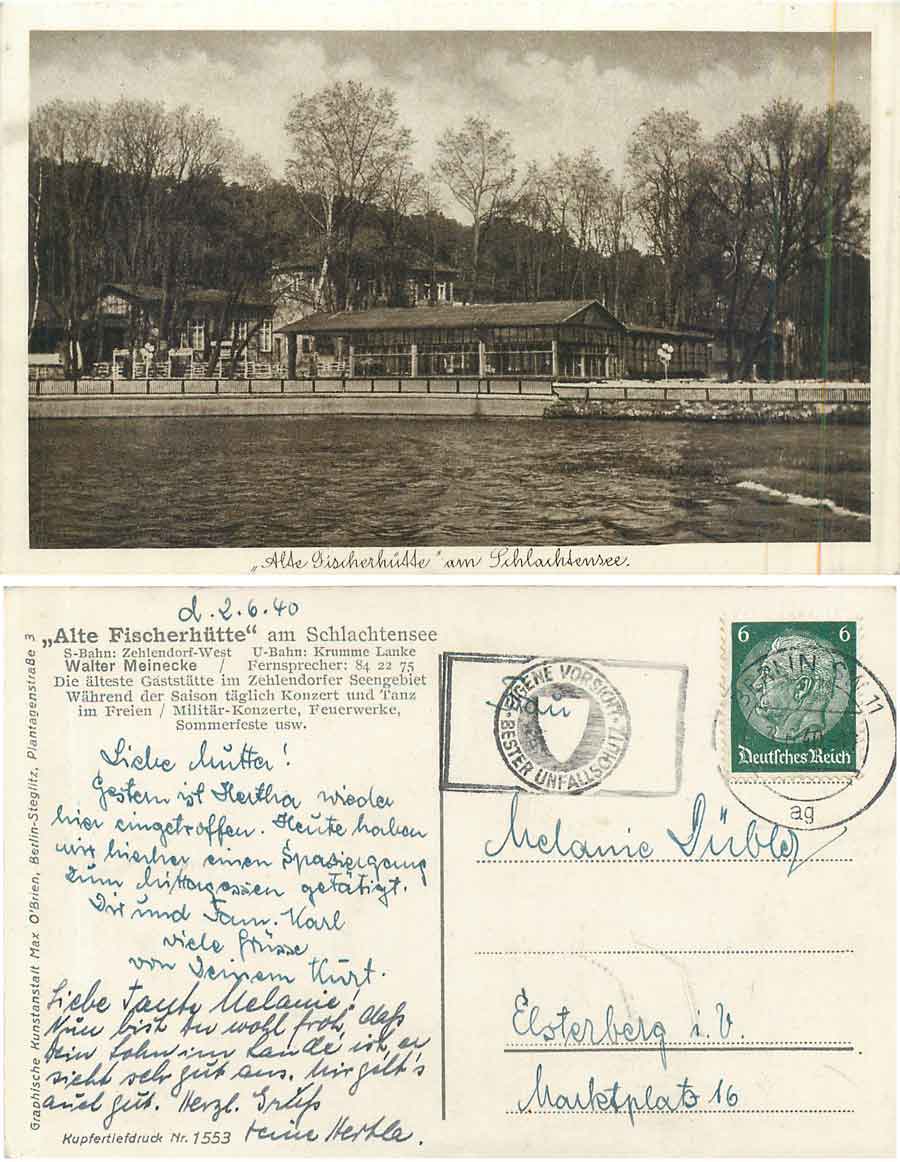 „Alte Fischerhütte" am Schlachtensee.
d. 2.6.40
„Alte Fischerhütte“ am Schlachtensee
S-Bahn: Zehlendorf-West U-Bahn: Krumme Lanke
Walter Meinecke / Fernsprecher: 84 22 75
Die älteste Gaststätte im Zehlendorfer Seengebiet
Während der Saison täglich Konzert und Tanz
im Freien / Militär-Konzerte, Feuerwerke,
Sommerfeste usw.
Liebe Mutter!
Gestern ist Hertha wieder
hier eingetroffen. Heute haben
wir hierher einen Spaziergang
zum Mittagessen getätigt.
Dir und Fam. Karl
viele Grüsse
von Deinem Kurt.
Liebe Tante Melanie!
Nun bist du wohl froh, daß
dein Sohn im Lande ist, er
sieht sehr gut aus. Mir geht's
auch gut. Herzl. Gruß
Deine Hertha.
Kupfertiefdruck Nr. 1553
Graphische Kunstanstalt Max O'Brien, Berlin-Steglitz, Plantagenstraße 3
EIGENE VORSICHT
BESTER UNFALLSCHUTZ
6 6
Deutsches Reich
BERLIN SW 11
ag
Melanie Dübler
Elsterberg i. V.
Marktplatz 16